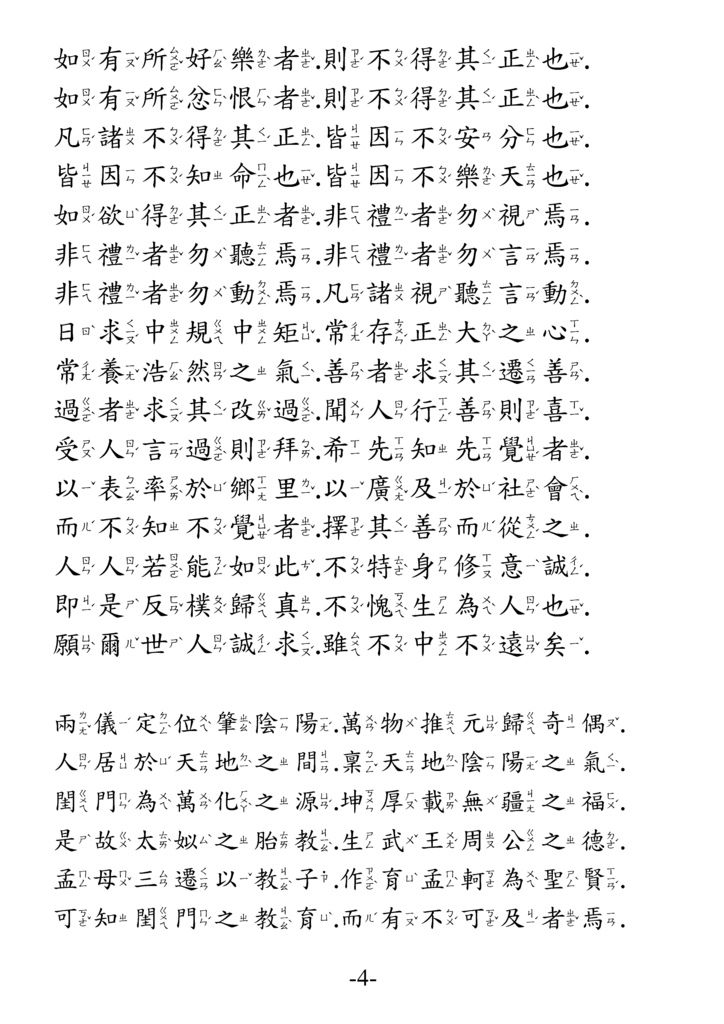 如有所好樂者.則不得其正也.
如有所忿恨者.則不得其正也.
凡諸不得其正.皆因不安分也.
皆因不知命也.皆因不樂天也.
如欲得其正者.非禮者勿視焉.
非禮者勿聽焉.非禮者勿言焉.
非禮者勿動焉.凡諸視聽言動.
日求中規中矩.常存正大之心.
常養浩然之氣.善者求其遷善.
過者求其改過.聞人行善則喜.
受人言過則拜.希先知先覺者.
以表率於鄉里.以廣及於社會.
而不知不覺者.擇其善而從之.
人人若能如此.不特身修意誠.
即是反樸歸真.不愧生為人也.
願爾世人誠求.雖不中不遠矣.
兩儀定位肇陰陽.萬物推元歸奇偶.
人居於天地之間.稟天地陰陽之氣.
閨門為萬化之源.坤厚載無疆之福.
是故太姒之胎教.生武王周公之德.
孟母三遷以教子.作育孟軻為聖賢.
可知閨門之教育.而有不可及者焉.
-4-